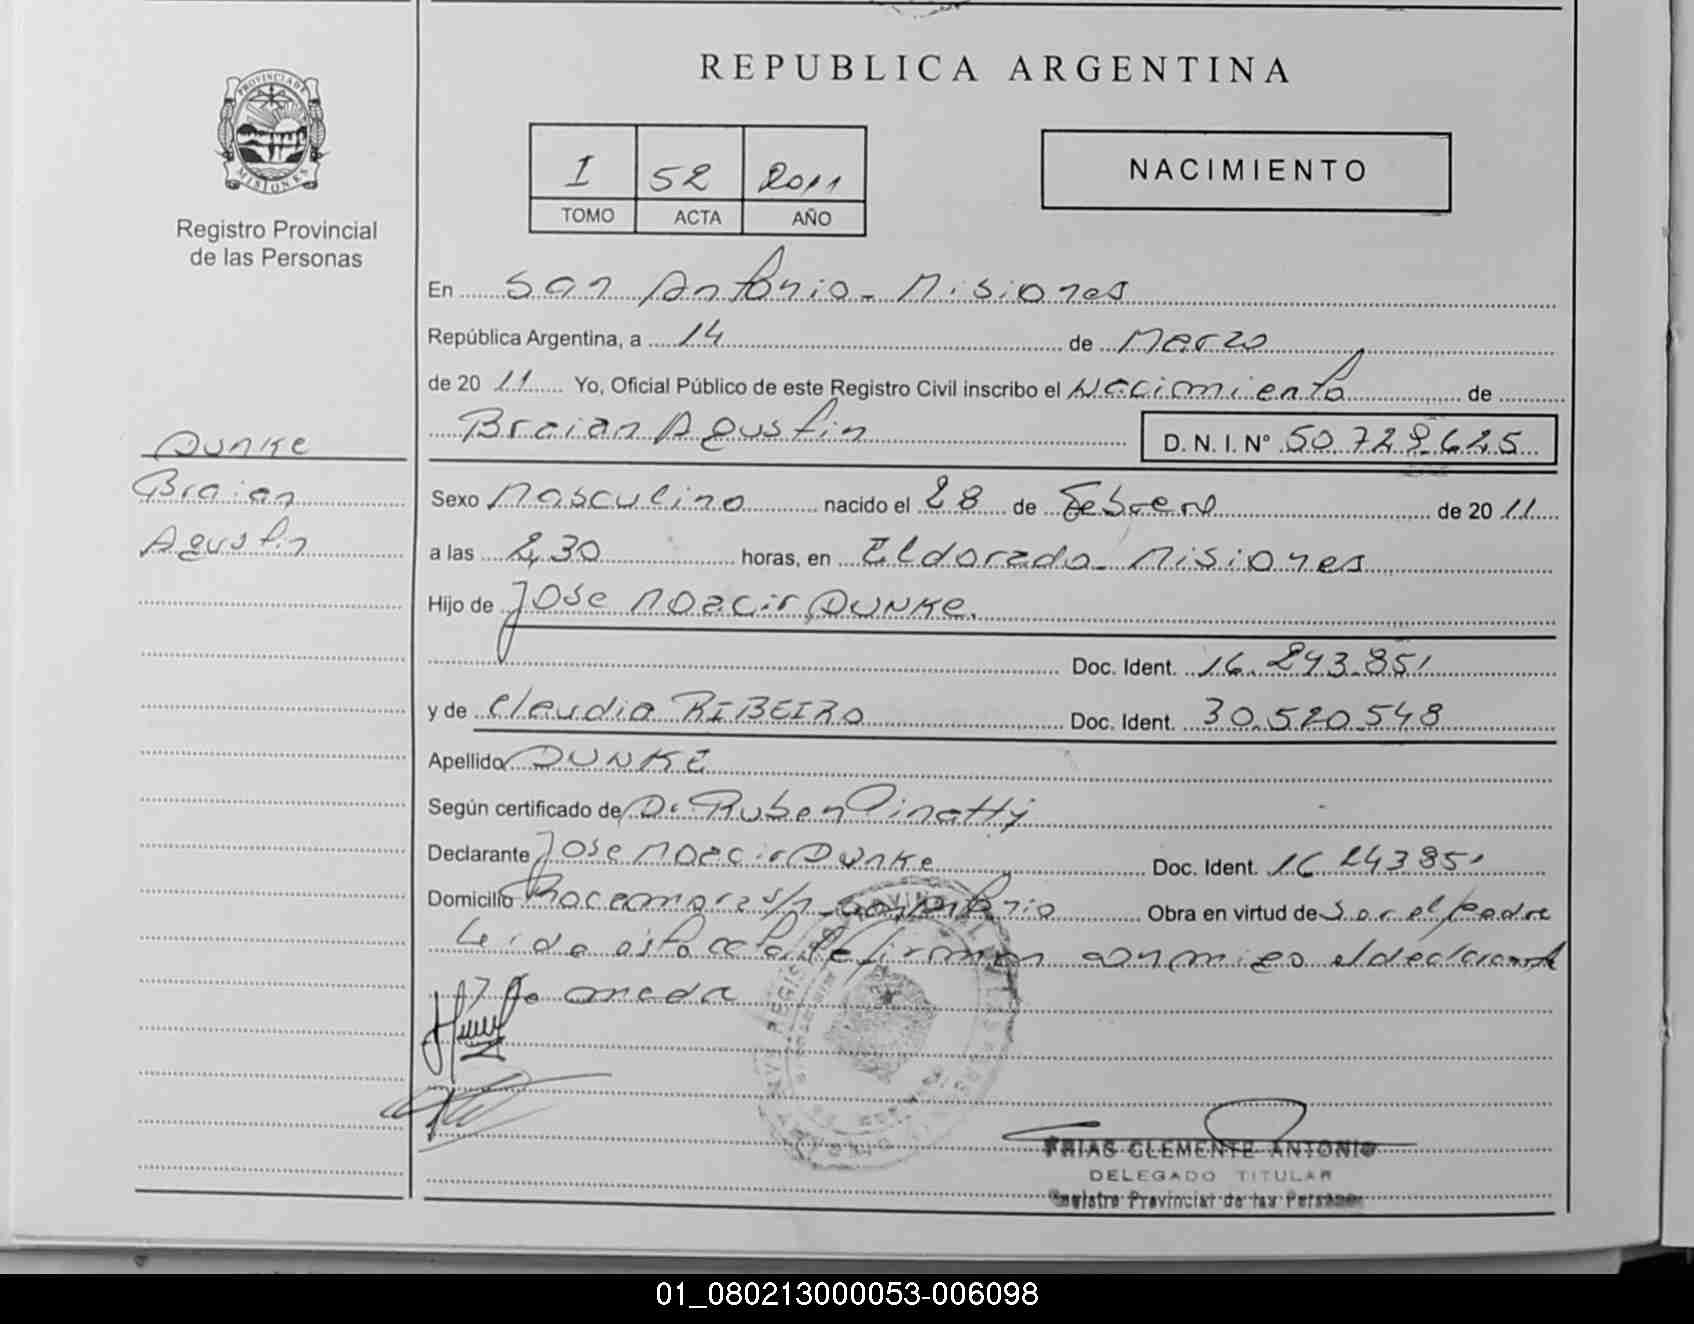 REPUBLICA ARGENTINA
PROVINCIA DE MISIONES
Registro Provincial
de las Personas
I 52 2011
TOMO ACTA AÑO
NACIMIENTO
En San Antonio - Misiones
República Argentina, a 14 de Marzo
de 20 11 Yo, Oficial Público de este Registro Civil inscribo el Nacimiento de
Braian Agustin D. N. I. Nº 50.729.625
DUNKE
Braian
Agustin
Sexo Masculino nacido el 28 de Febrero de 20 11
a las 2,30 horas, en Eldorado - Misiones
Hijo de Jose Moacir DUNKE.
Doc. Ident. 16.243.851
y de Claudia RIBEIRO Doc. Ident. 30.520.548
Apellido DUNKE
Según certificado de Dr Ruben Pinatty
Declarante Jose Moacir Dunke Doc. Ident. 16 243 851
Domicilio Rocamora s/n San Antonio Obra en virtud de Ser el padre
Leida esta acta la firman conmigo el declarante
FRIAS CLEMENTE ANTONIO
DELEGADO TITULAR
Registro Provincial de las Personas
01_080213000053-006098